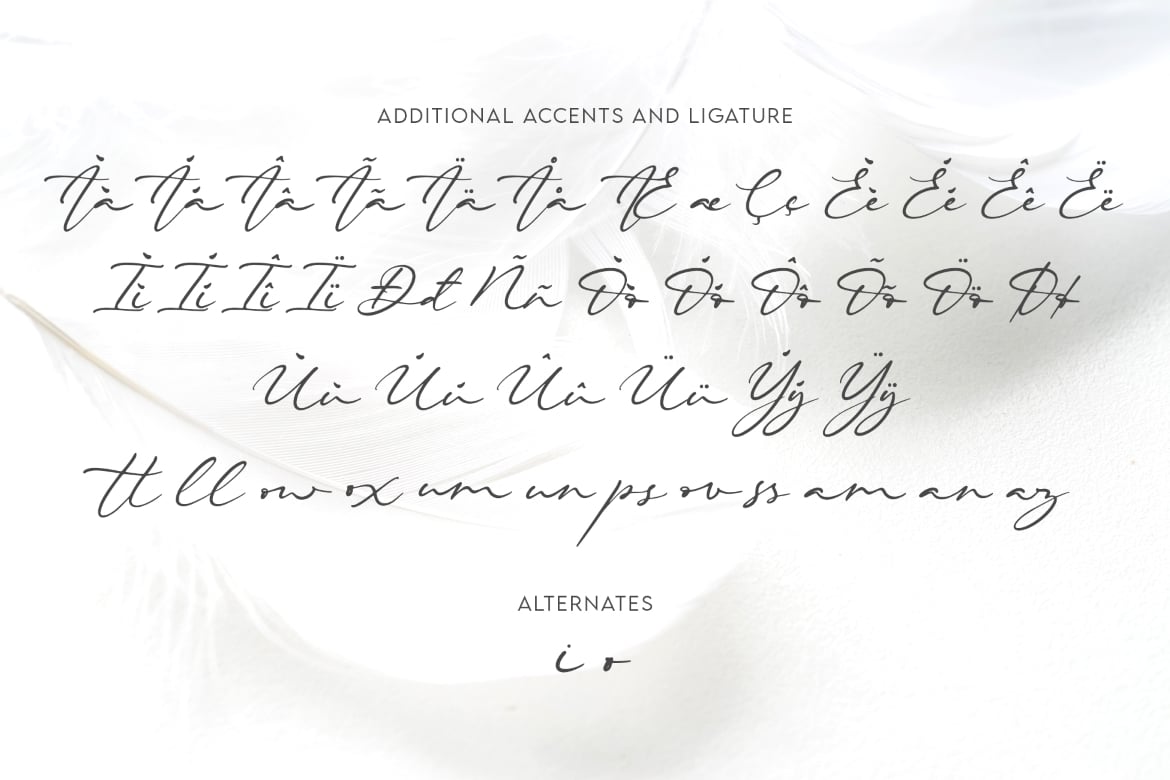 ADDITIONAL ACCENTS AND LIGATURE
Àà Áá Ââ Ãã Ää Åå Ææ Çç Èè Éé Êê Ëë
Ìì Íí Îî Ïï Đđ Ññ Òò Óó Ôô Õõ Öö Øø
Ùù Úú Ûû Üü Ýý Ÿÿ
tt ll ow ox um un ps ov ss am an az
ALTERNATES
i o